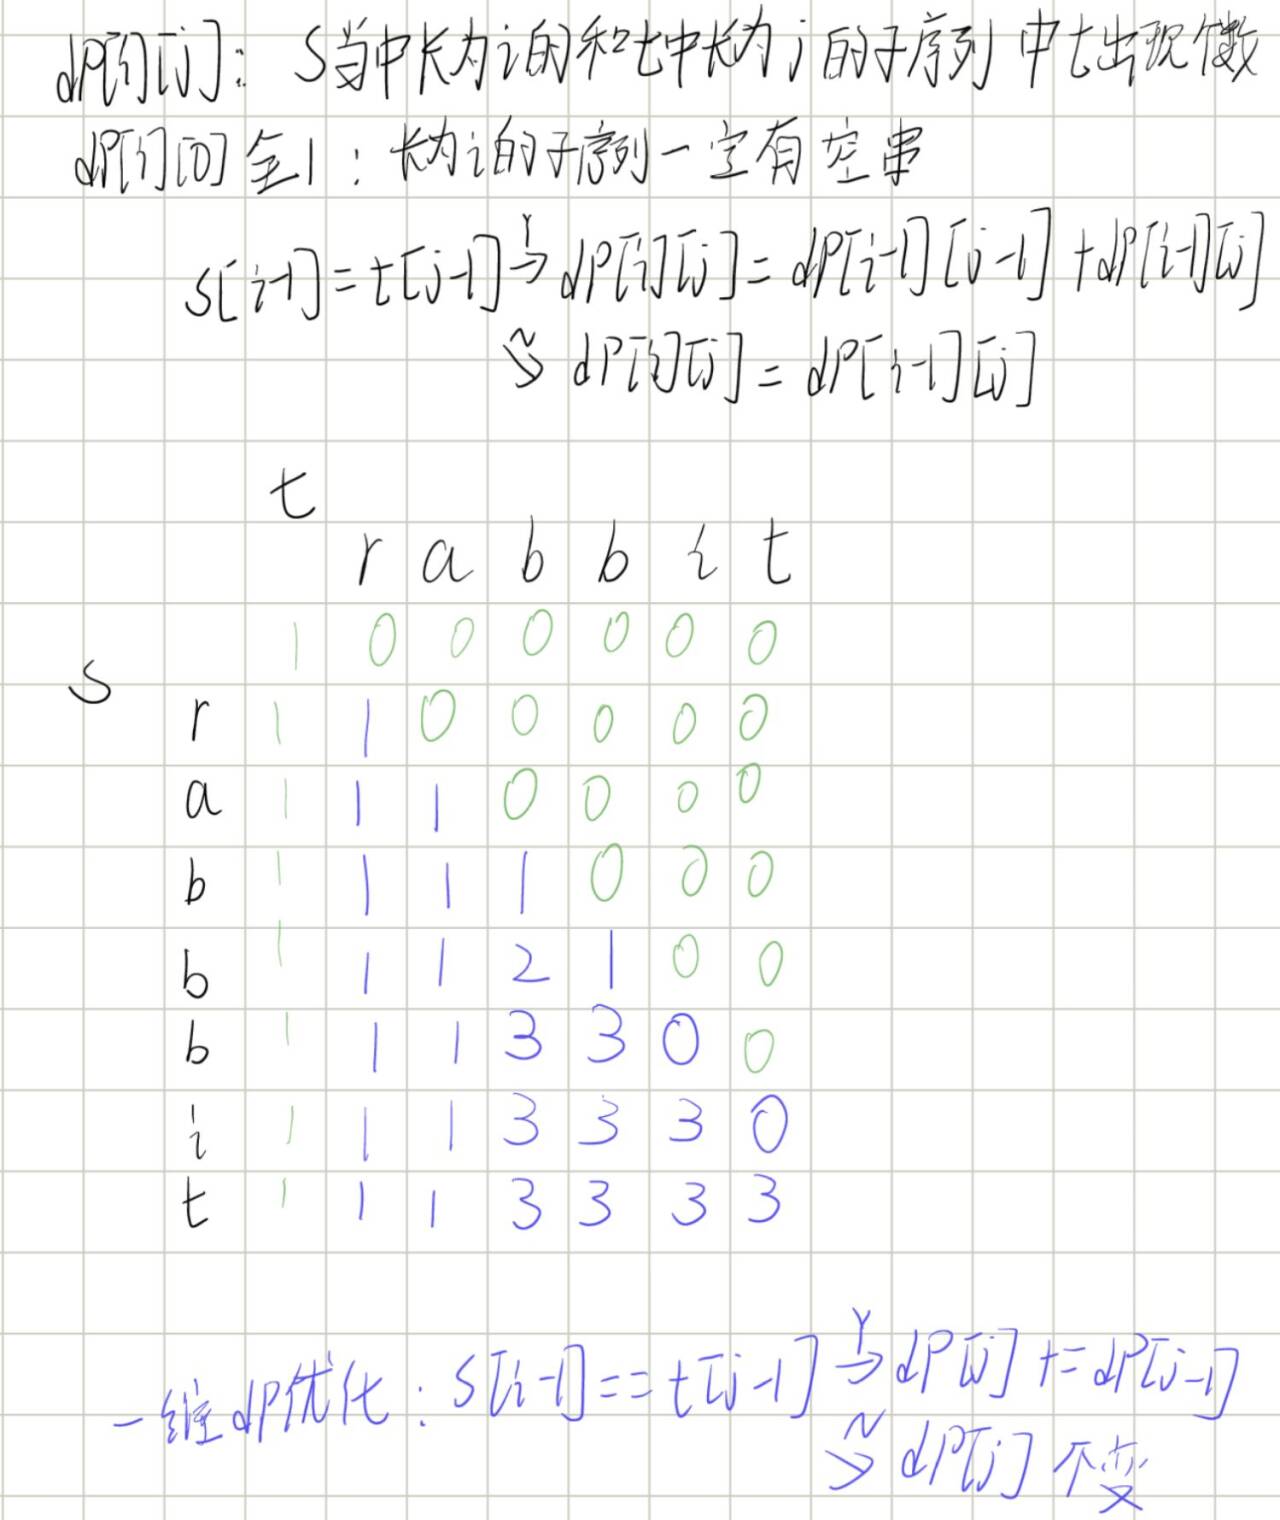 dP[i][j]: S当中长为i的和t中长为j的子序列中t出现个数
dP[i][0]全1：长为i的子序列一定有空串
s[i-1]=t[j-1] Y→ dP[i][j]=dP[i-1][j-1]+dP[i-1][j]
N→ dP[i][j]=dP[i-1][j]
t
r a b b i t
1 0 0 0 0 0 0
S
r 1 1 0 0 0 0 0
a 1 1 1 0 0 0 0
b 1 1 1 1 0 0 0
b 1 1 1 2 1 0 0
b 1 1 1 3 3 0 0
i 1 1 1 3 3 3 0
t 1 1 1 3 3 3 3
一维dP优化：S[i-1]==t[j-1] Y→ dP[j]+=dP[j-1]
N→ dP[j]不变